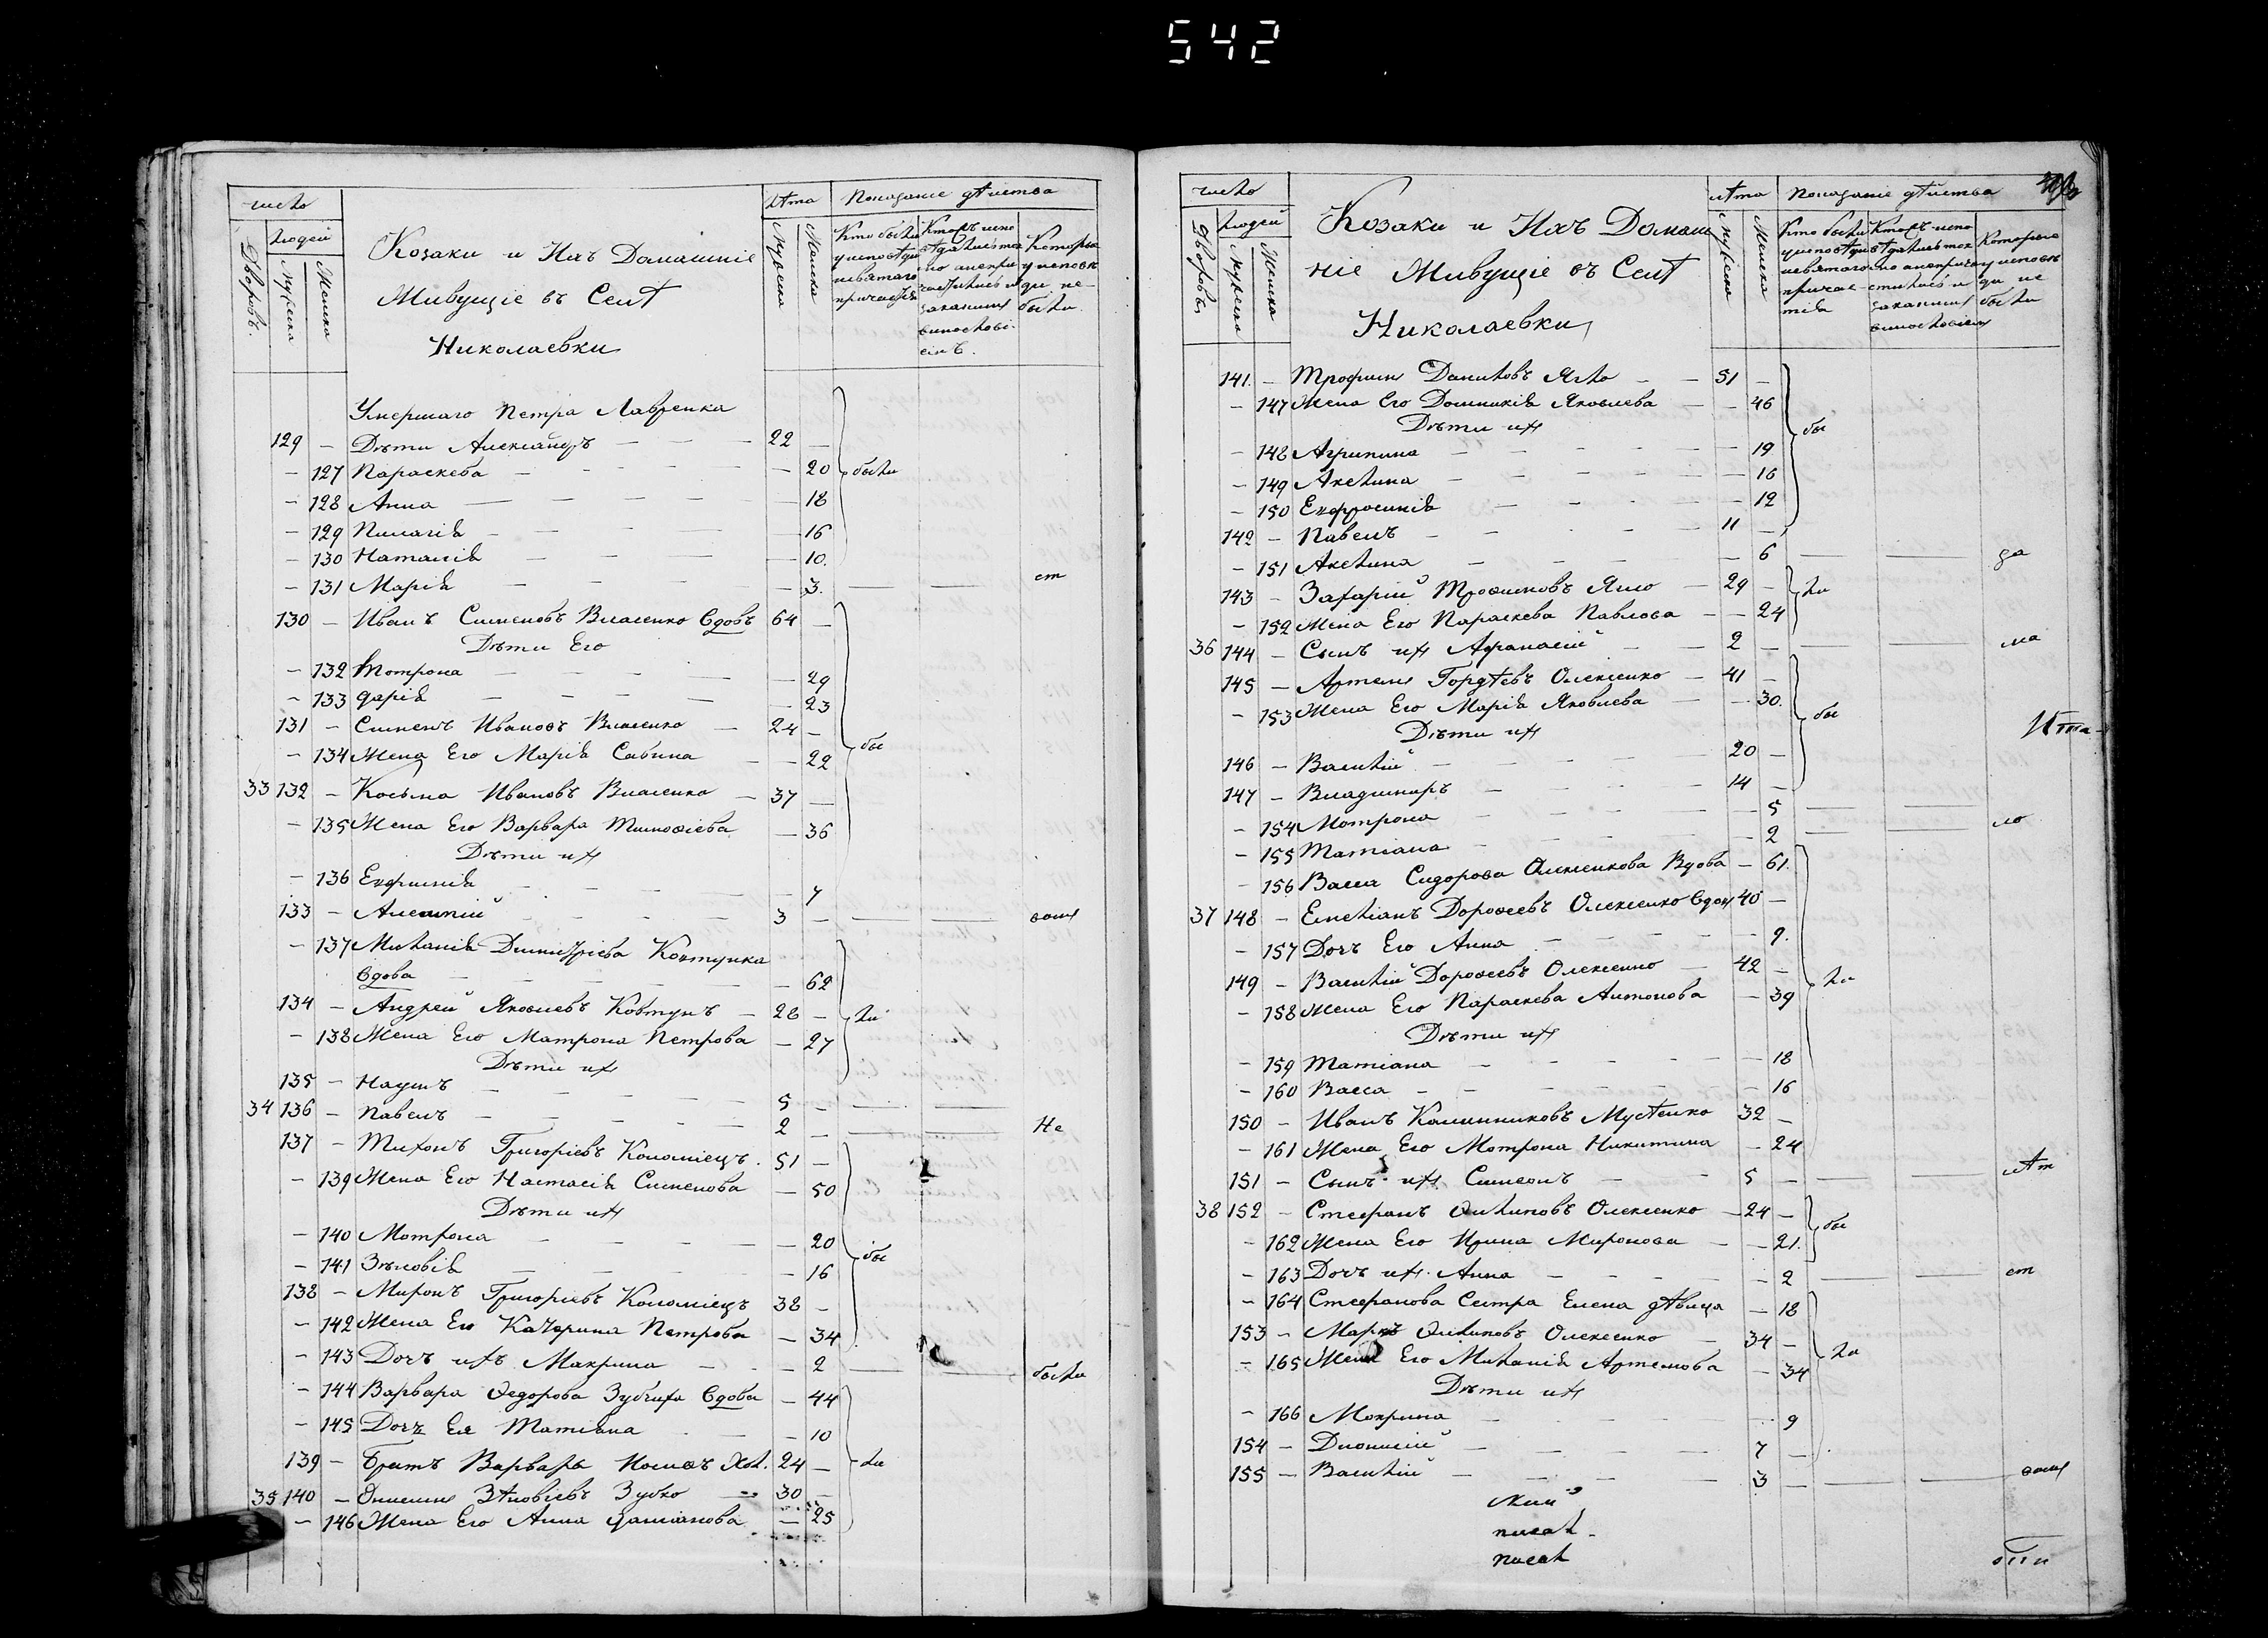 542
число
людей
Дворовъ
Мужеска
Женска
Козаки и Ихъ Домашніе
Живущіе въ Селѣ
Николаевки
лѣта
Мужеска
Женска
Показаніе дѣйства
Кто были
у исповѣди
и святаго
причастія
были.
Умершаго Петра Лавренка
129 – Дѣти Александръ – – – 22 –
– 127 Параскева – – – – – 20 были
– 128 Анна – – – – – 18
– 129 Пилагія – – – – – 16
– 130 Наталія – – – – 10.
– 131 Марія – – – – 3. – – ст
130 – Иванъ Сименовъ Власенко вдовъ 64 –
Дѣти Его
– 132 Мотрона – – – – – 29
– 133 Дарія – – – – – 23
131 – Сименъ Ивановъ Власенко – 24 –
– 134 Жена Его Марія Савина – – 22 бы
33 132 – Косьма Ивановъ Власенко – 37 –
– 135 Жена Его Варвара Тимофіева – 36
Дѣти ихъ
– 136 Евфимія – – – – 7
133 – Алексій – – – – 3 – – –
– 137 Миланія Димитріева Ковтунка
вдова – – – – – 62
134 – Андрей Яковлевъ Ковтунъ – 28 – ли
– 138 Жена Его Матрона Петрова – 27
Дѣти ихъ
135 – Наумъ – – – – 5 – – –
34 136 – Павелъ – – – – 2 – – – Не
137 – Тихонъ Григоріевъ Коломіецъ. 51 –
– 139 Жена Его Настасія Сименова – 50
Дѣти ихъ
– 140 Мотрона – – – – 20
– 141 Зѣновія – – – – 16 бы
138 – Миронъ Григоріевъ Коломіецъ 38 –
– 142 Жена Его Катерина Петрова – 34
– 143 Дочъ ихъ Макрина – – – 2 – – были
– 144 Варвара Федорова Зубчиха вдова – 44
– 145 Дочъ Ея Татіана – – 10
139 – Братъ Варвары Хол. 24 – ли
35 140 – Онисимъ Зѣновіевъ Зубко – 30 –
– 146 Жена Его Анна Даміанова – 25
число
людей
Дворовъ
Мужеска
Женска
Козаки и Ихъ Домаш
ніе Живущіе въ Селѣ
Николаевки
лѣта
Мужеска
Женска
Показаніе дѣйства
Кто были
у исповѣди
и святаго
причас-
тія
Которые
у исповѣ
ди не
были
141. – Трофимъ Даниловъ Ягло – – 51 –
– 147 Жена Его Домникія Яковлева – – 46
Дѣти ихъ бы
– 148 Агрипина – – – – – 19
– 149 Акелина – – – – – 16
– 150 Евфросинія – – – – 12
142 – Павелъ – – – – 11 –
– 151 Акелина – – – – – 6 – – да
143 – Захарій Трофимовъ Ягло – 29 – ли
– 152 Жена Его Параскева Павлова – – 24
36 144 – Сынъ ихъ Афанасій – – 2 – – –
145 – Артемъ Гордѣевъ Олексенко – 41 –
– 153 Жена Его Марія Яковлева – – 30. бы
Дѣти ихъ
146 – Василій – – – – 20 –
147 – Владимиръ – – – 14 –
– 154 Мотрона – – – – 5 – –
– 155 Татіана – – – – 2 – – ло
– 156 Васса Сидорова Олексенкова Вдова – 61.
37 148 – Емеліанъ Дорофеевъ Олексенко вдов 40 –
– 157 Дочъ Его Анна – – – – 9.
149 – Василій Дорофеевъ Олексенко – 42 – ли
– 158 Жена Его Параскева Антонова – 39
Дѣти ихъ
– 159 Татіана – – – – 18
– 160 Васса – – – – 16
150 – Иванъ Калинниковъ Мусѣенко 32 –
– 161 Жена Его Мотрона Никитина – 24
151 – Сынъ ихъ Симеонъ – – 5 – – – лѣт
38 152 – Стефанъ Филиповъ Олексенко – 24 – бы
– 162 Жена Его Ирина Миронова – – 21.
– 163 Дочъ ихъ Анна – – – – 2 – – ст
– 164 Стефанова Сестра Елена дѣвица – 18
153 – Маркъ Филиповъ Олексенко – 34 – ли
– 165 Жена Его Миланія Артемова – 34
Дѣти ихъ
– 166 Мокрина – – – 9
154 – Дионисій – – – 7 –
155 – Василій – – – 3 – – –